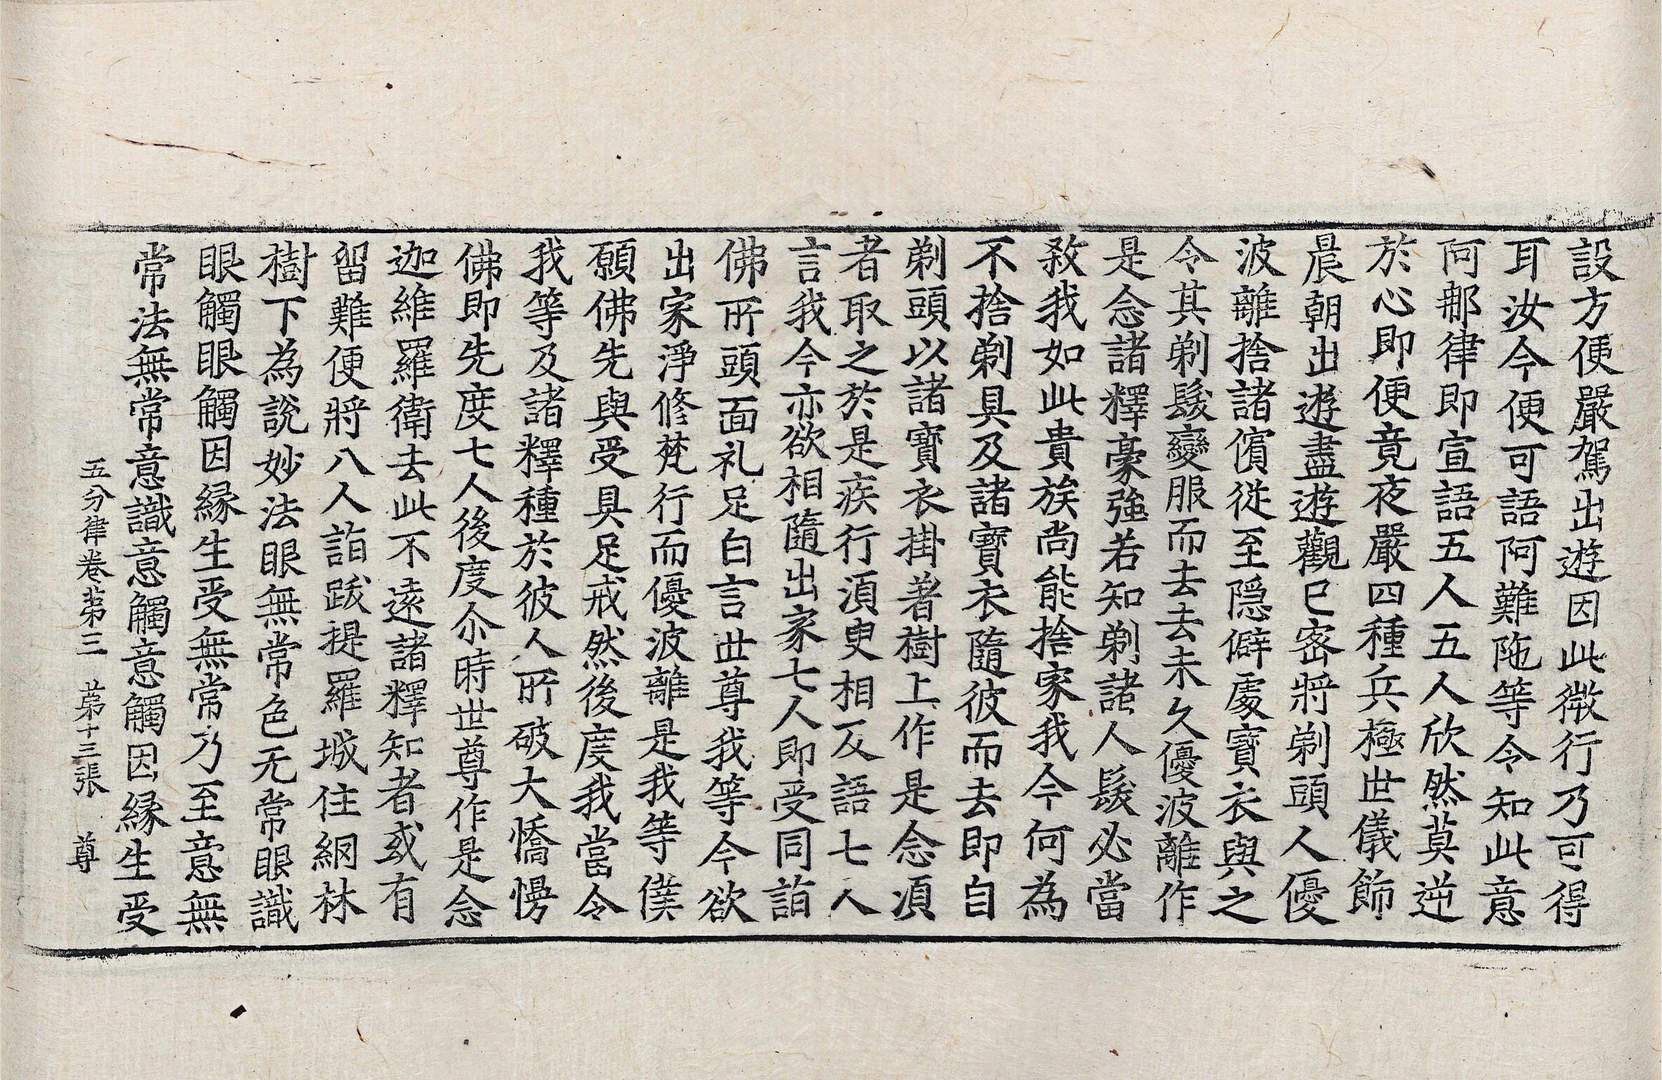 設方便嚴駕出遊因此微行乃可得
耳汝今便可語阿難陁等令知此意
阿那律即宣語五人五人欣然莫逆
於心即便竟夜嚴四種兵極世儀飾
晨朝出遊盡遊觀已密將剃頭人優
波離捨諸儐從至隱僻處寶衣與之
令其剃髮變服而去去未久優波離作
是念諸釋豪強若知剃諸人髮必當
敎我如此貴族尚能捨家我今何為
不捨剃具及諸寶衣隨彼而去即自
剃頭以諸寶衣掛著樹上作是念湏
者取之於是疾行湏臾相及語七人
言我今亦欲相隨出家七人即受同詣
佛所頭面礼足白言世尊我等今欲
出家淨修梵行而優波離是我等僕
願佛先與受具足戒然後度我當令
我等及諸釋種於彼人所破大憍慢
佛即先度七人後度尒時世尊作是念
迦維羅衛去此不遠諸釋知者或有
留難便將八人詣跋提羅城住網林
樹下為說妙法眼無常色无常眼識
眼觸眼觸因緣生受無常乃至意無
常法無常意識意觸意觸因緣生受
五分律卷第三　第十三張　尊